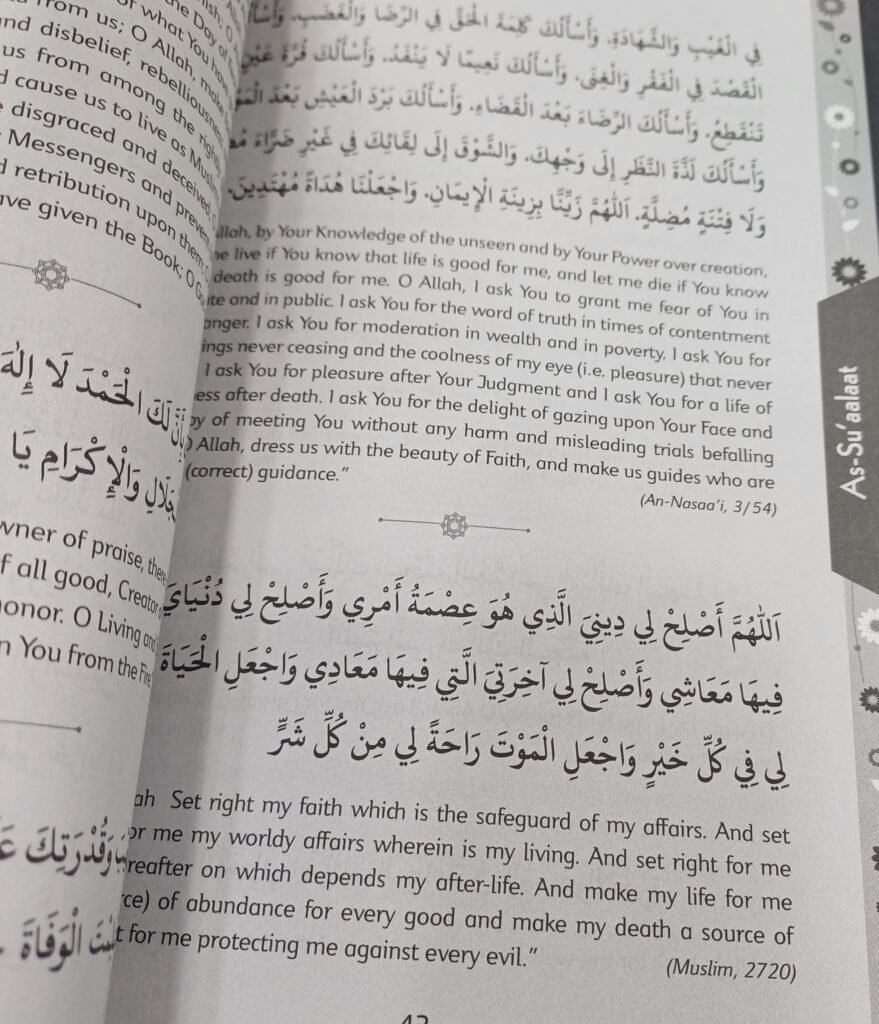 from us; O Allah, make
and disbelief, rebelliousness
us from among the rightly
cause us to live as Muslims
disgraced and deceived
Messengers and prevent
retribution upon them
have given the Book; O God
لَكَ الْحَمْدَ لَا إِلٰهَ
وَالْإِكْرَامِ يَا
owner of praise, there
of all good, Creator
honor. O Living and
You from the Fire
وَقُدْرَتِكَ
الْوَفَاةَ
فِي الْغَيْبِ وَالشَّهَادَةِ. وَأَسْأَلُكَ كَلِمَةَ الْحَقِّ فِي الرِّضَا وَالْغَضَبِ.
الْقَصْدَ فِي الْفَقْرِ وَالْغِنَى. وَأَسْأَلُكَ نَعِيمًا لَا يَنْفَدُ. وَأَسْأَلُكَ قُرَّةَ عَيْنٍ
تَنْقَطِعُ. وَأَسْأَلُكَ الرِّضَاءَ بَعْدَ الْقَضَاءِ. وَأَسْأَلُكَ بَرْدَ الْعَيْشِ بَعْدَ
وَأَسْأَلُكَ لَذَّةَ النَّظَرِ إِلَى وَجْهِكَ. وَالشَّوْقَ إِلَى لِقَائِكَ فِي غَيْرِ ضَرَّاءَ
وَلَا فِتْنَةٍ مُضِلَّةٍ. اَللّٰهُمَّ زَيِّنَّا بِزِينَةِ الْإِيمَانِ. وَاجْعَلْنَا هُدَاةً مُهْتَدِينَ.
llah, by Your Knowledge of the unseen and by Your Power over creation,
live if You know that life is good for me, and let me die if You know
death is good for me. O Allah, I ask You to grant me fear of You in
and in public. I ask You for the word of truth in times of contentment
anger. I ask You for moderation in wealth and in poverty. I ask You for
ings never ceasing and the coolness of my eye (i.e. pleasure) that never
I ask You for pleasure after Your Judgment and I ask You for a life of
ess after death. I ask You for the delight of gazing upon Your Face and
of meeting You without any harm and misleading trials befalling
Allah, dress us with the beauty of Faith, and make us guides who are
(correct) guidance.”
(An-Nasaa’i, 3/54)
اَللّٰهُمَّ أَصْلِحْ لِي دِينِيَ الَّذِي هُوَ عِصْمَةُ أَمْرِي وَأَصْلِحْ لِي دُنْيَايَ
فِيهَا مَعَاشِي وَأَصْلِحْ لِي آخِرَتِيَ الَّتِي فِيهَا مَعَادِي وَاجْعَلِ الْحَيَاةَ
لِي فِي كُلِّ خَيْرٍ وَاجْعَلِ الْمَوْتَ رَاحَةً لِي مِنْ كُلِّ شَرٍّ
ah Set right my faith which is the safeguard of my affairs. And set
or me my worldy affairs wherein is my living. And set right for me
reafter on which depends my after-life. And make my life for me
rce) of abundance for every good and make my death a source of
t for me protecting me against every evil.”
(Muslim, 2720)
As-Su’aalaat